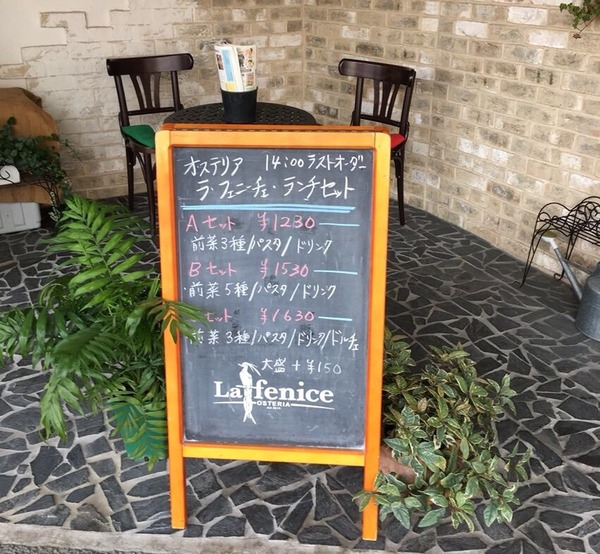 オステリア 14:00ラストオーダー
ラ・フェニーチェ・ランチセット
Aセット ¥1230
前菜3種/パスタ/ドリンク
Bセット ¥1530
前菜5種/パスタ/ドリンク
セット ¥1630
前菜3種/パスタ/ドリンク/ドルチェ
大盛+¥150
La fenice
OSTERIA